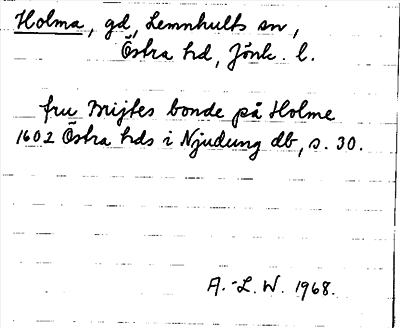 Holma, gd, Lemnhults sn,
Östra hd, Jönk. l.
fru Mijtes bonde på Holme
1602 Östra hds i Njudung db, s. 30.
A.-L. W. 1968.